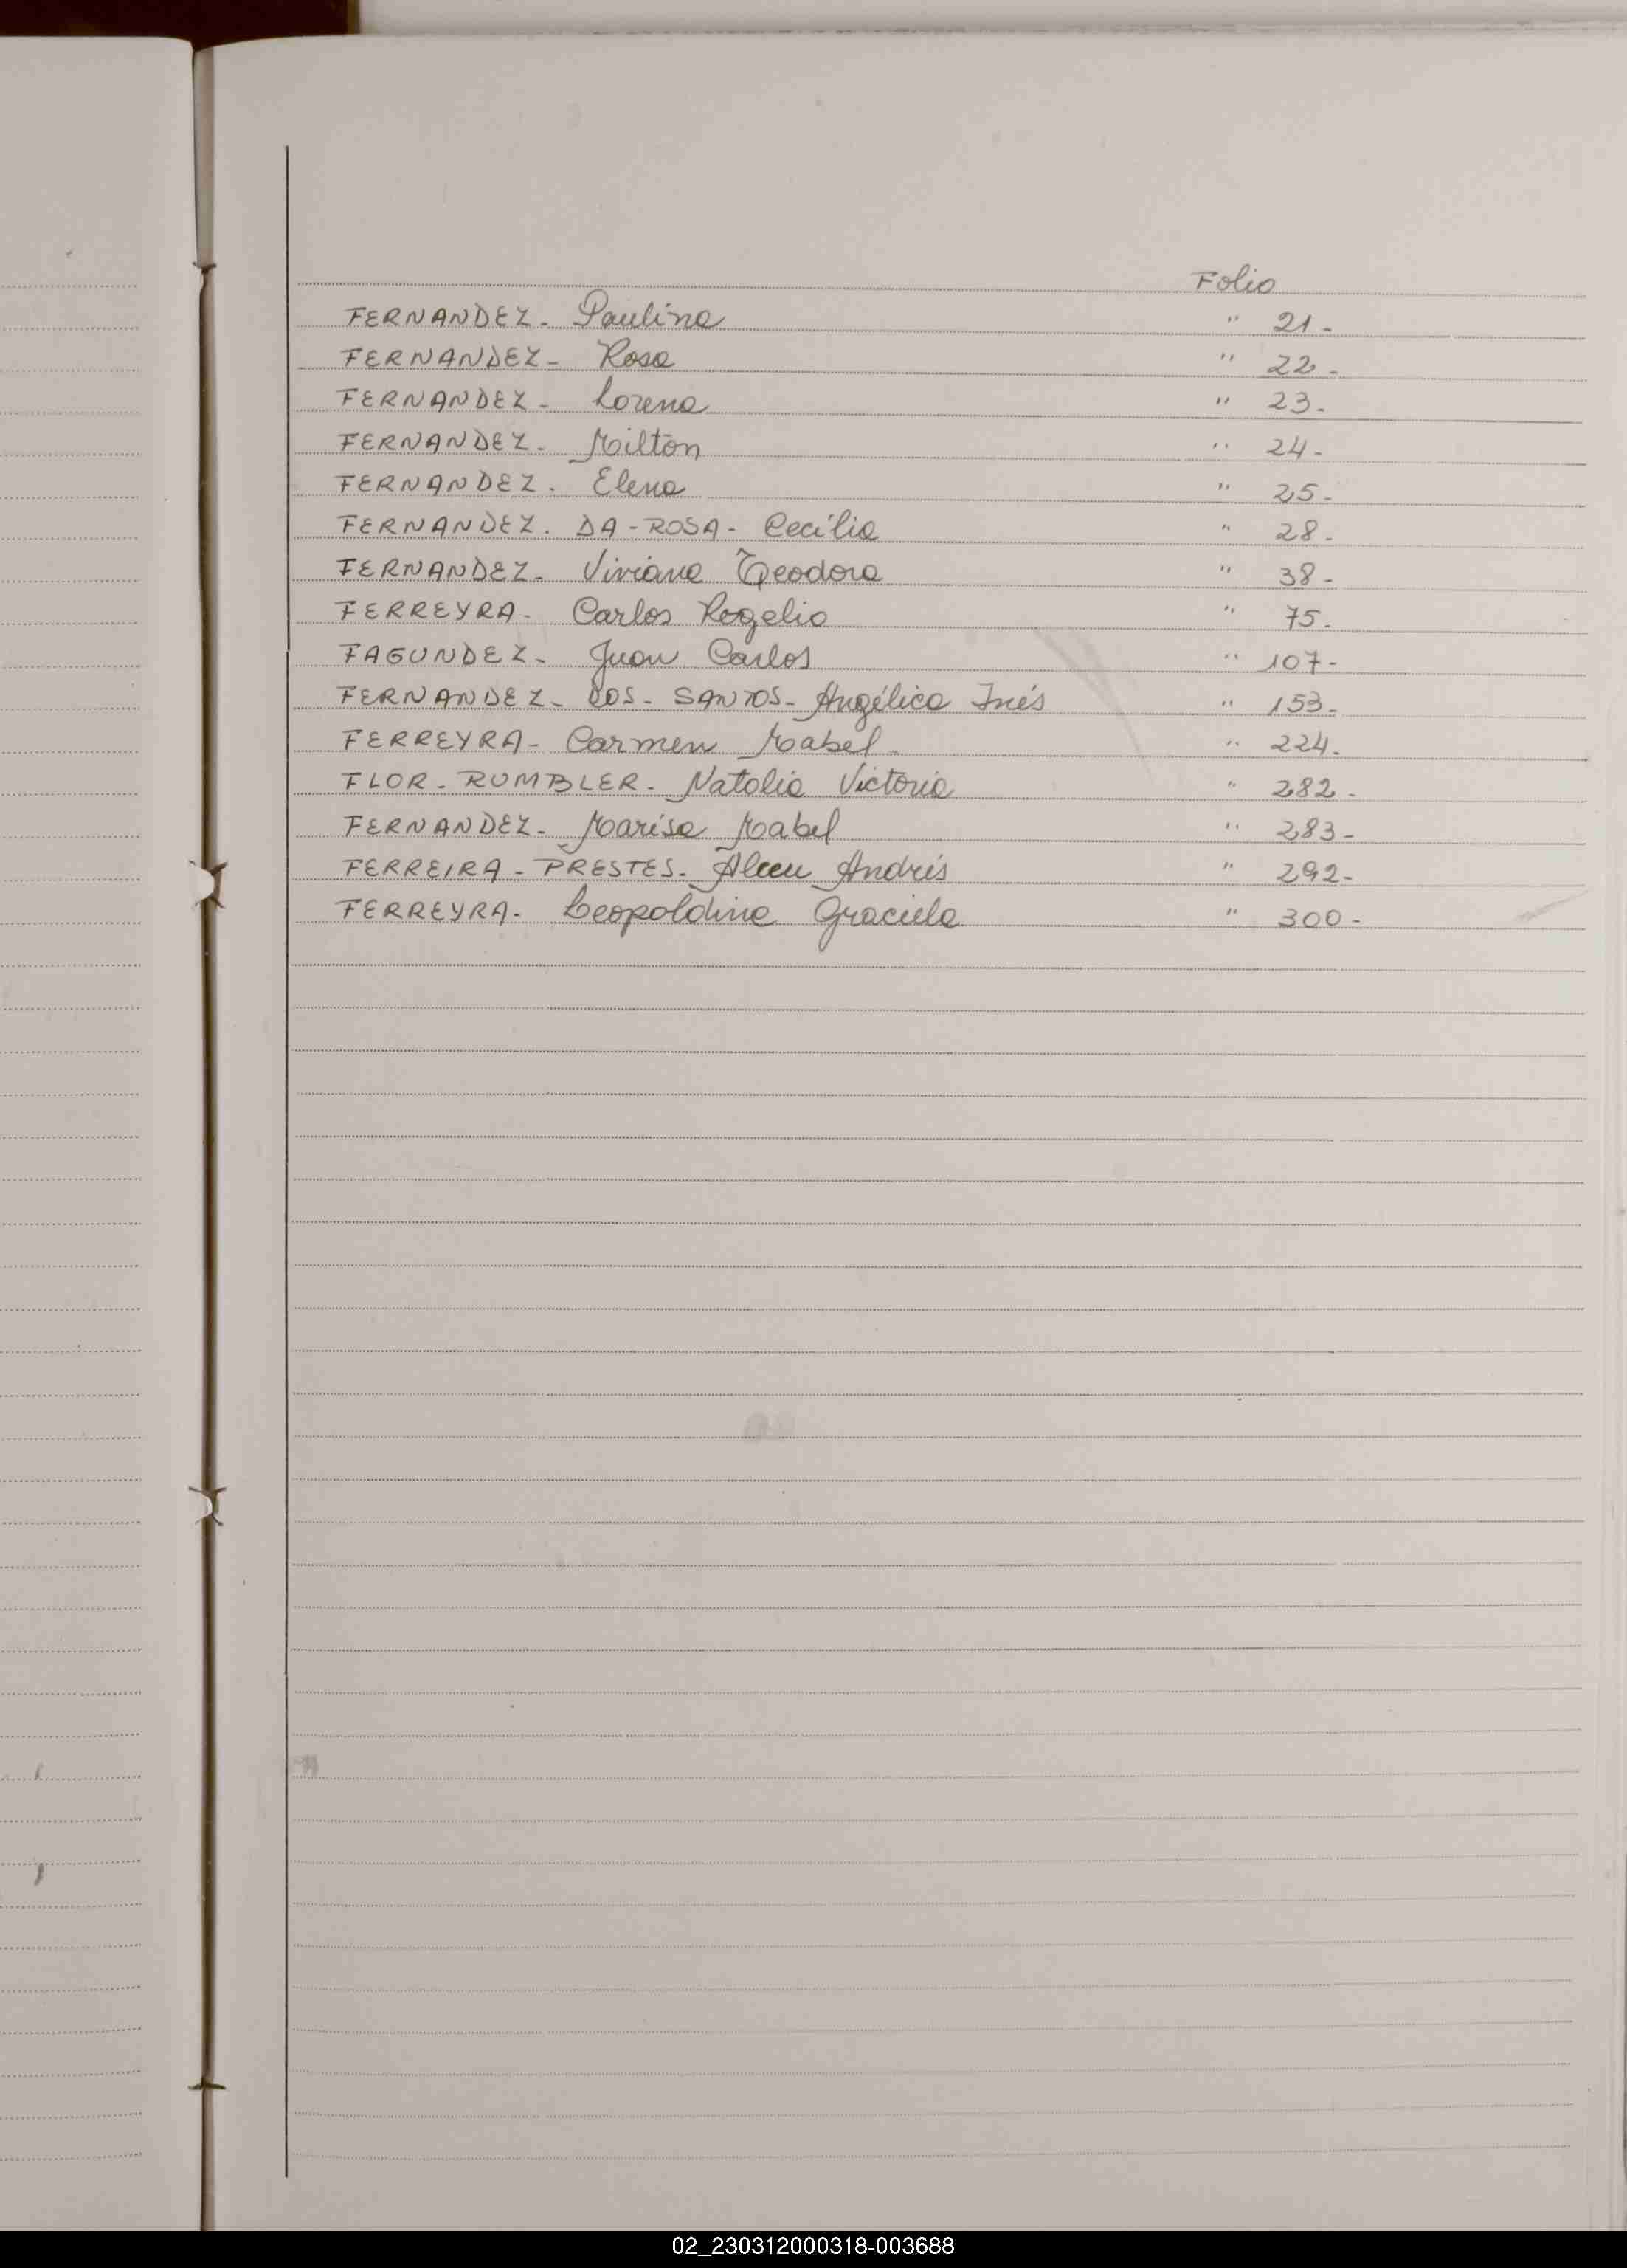 Folio
FERNANDEZ- Paulina " 21-
FERNANDEZ- Rosa " 22-
FERNANDEZ- Lorena " 23-
FERNANDEZ- Milton " 24-
FERNANDEZ- Elena " 25-
FERNANDEZ- DA-ROSA- Cecilia " 28-
FERNANDEZ- Viviana Teodora " 38-
FERREYRA- Carlos Rogelio " 75-
FAGUNDEZ- Juan Carlos " 107-
FERNANDEZ- DOS- SANTOS- Angélica Inés " 153-
FERREYRA- Carmen Mabel " 224-
FLOR-RUMBLER- Natalia Victoria " 282-
FERNANDEZ- Marisa Mabel " 283-
FERREIRA-PRESTES- Alceu Andrés " 292-
FERREYRA- Leopoldina Graciela " 300-
02_230312000318-003688